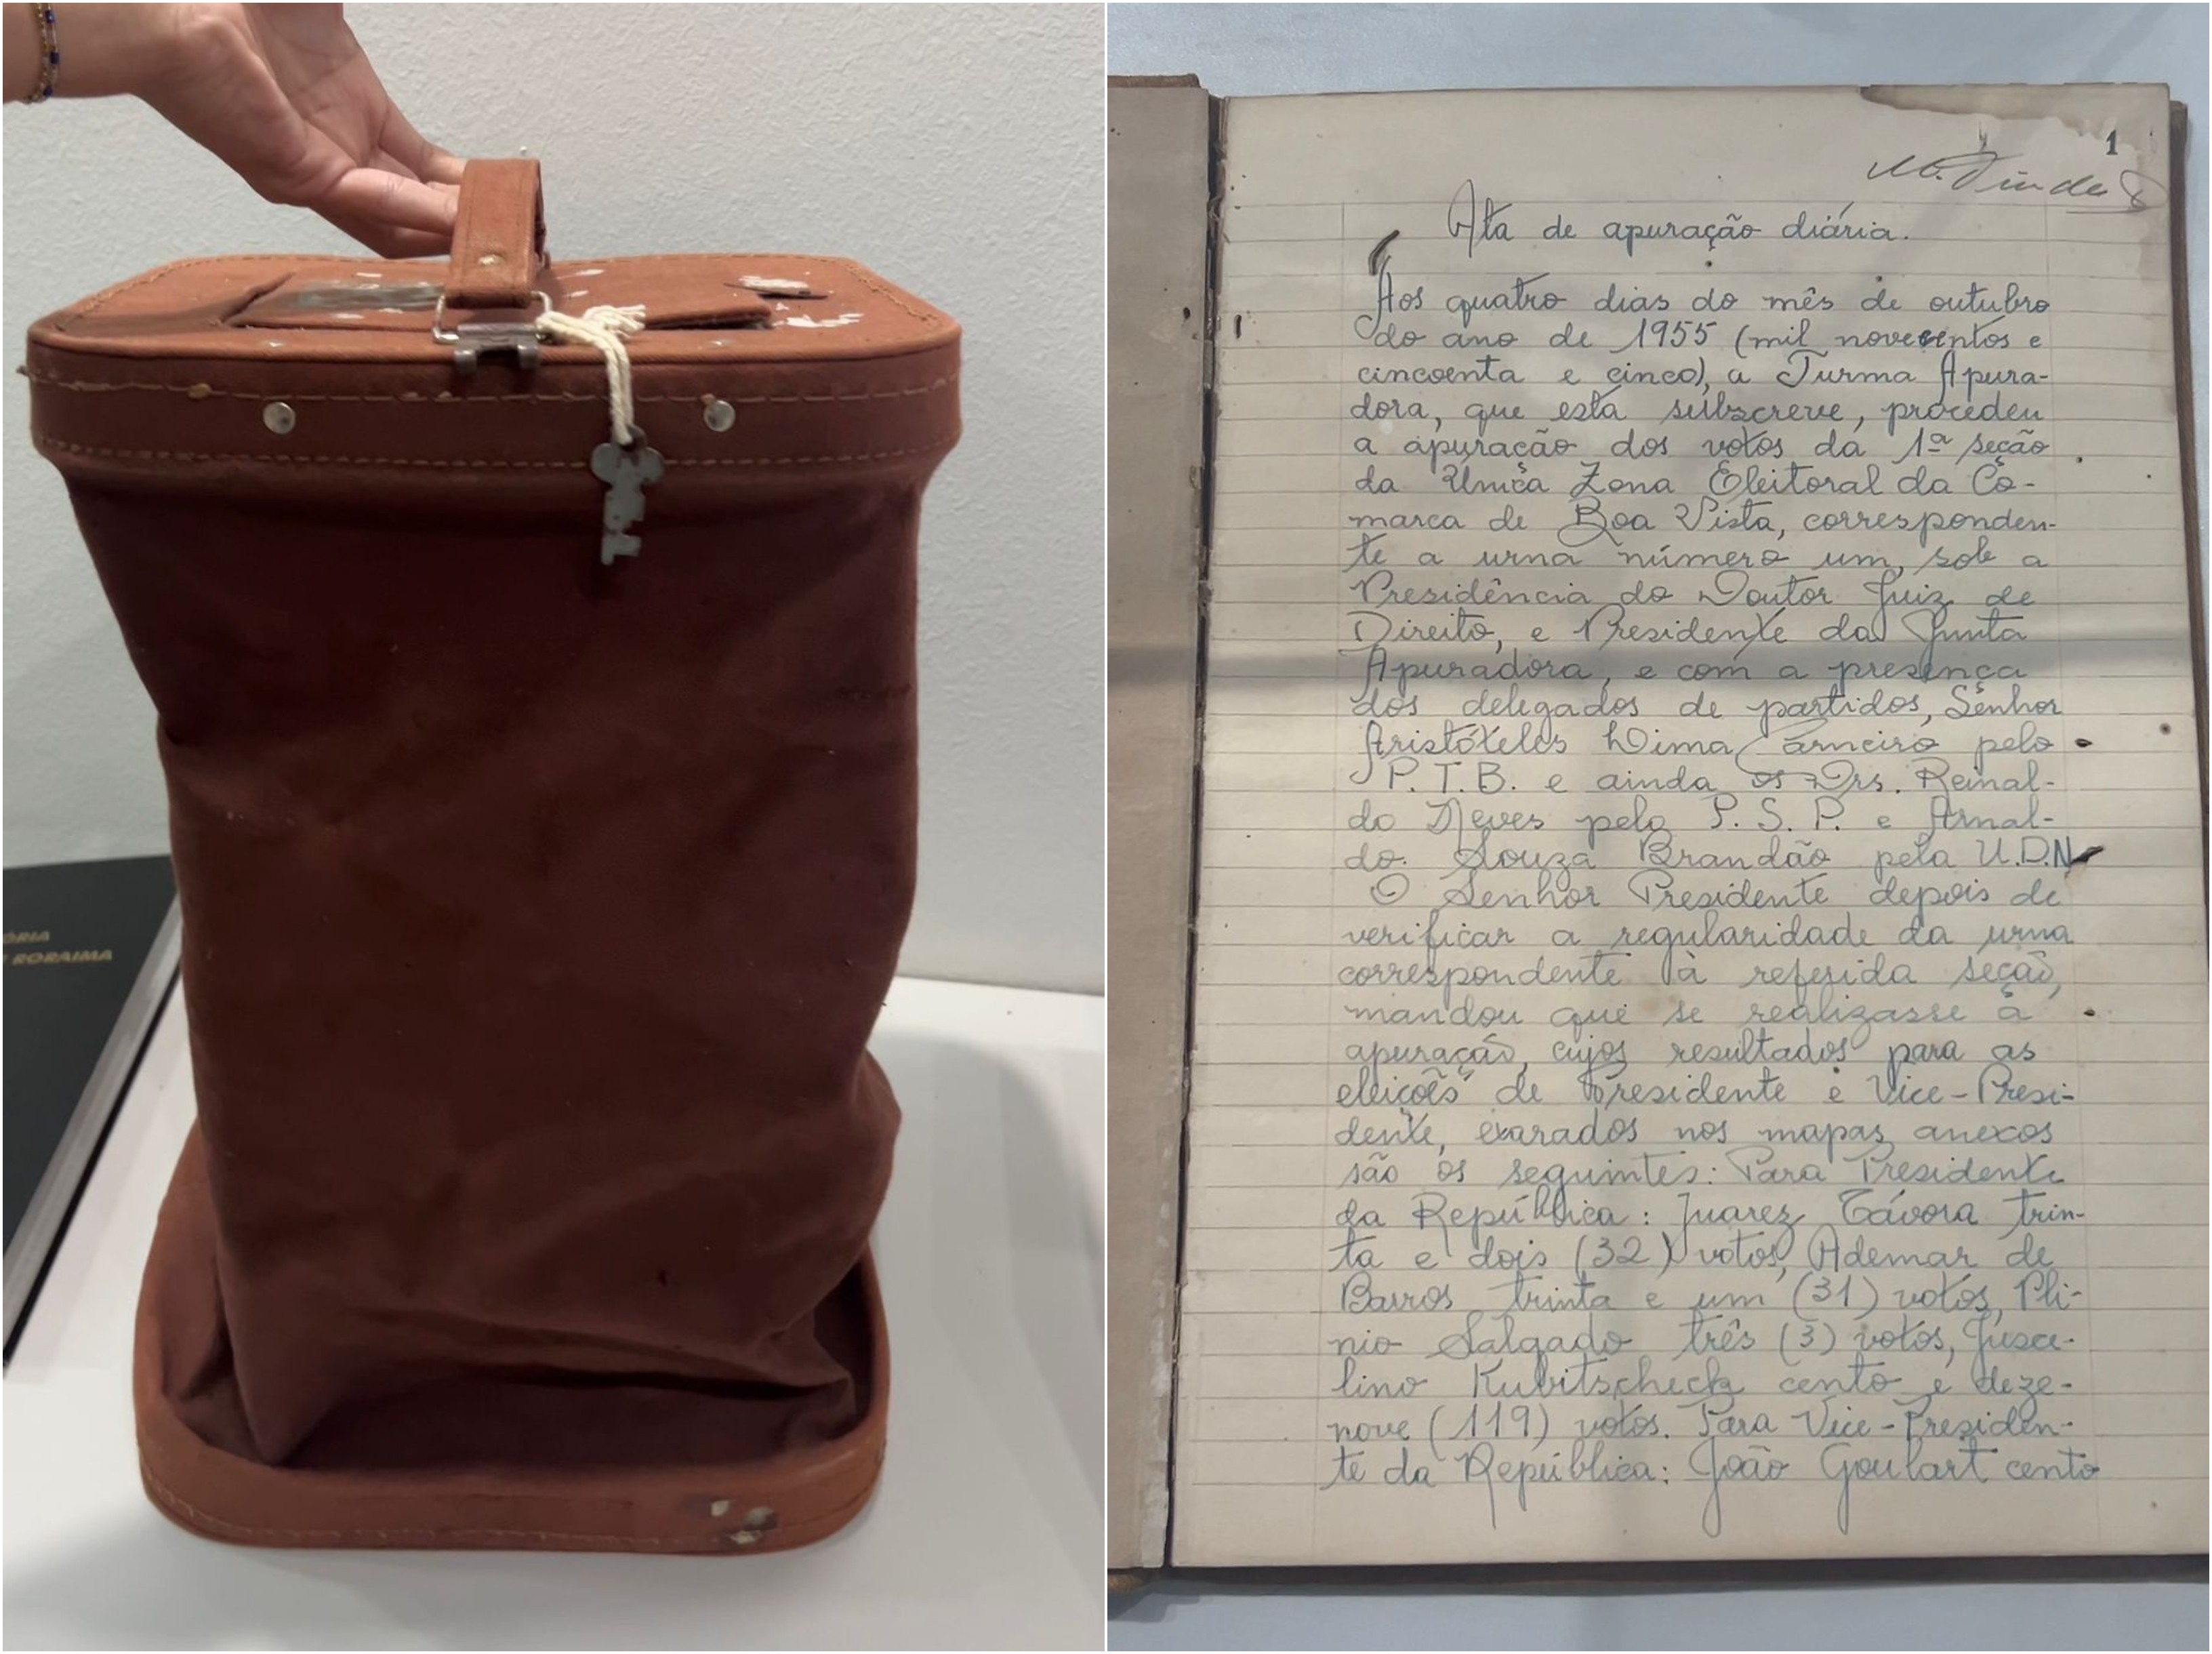 ÓRIA
RORAIMA
1
Ata de apuração diária.
Aos quatro dias do mês de outubro
do ano de 1955 (mil novecentos e
cincoenta e cinco), a Turma Apura-
dora, que esta subscreve, procedeu
a apuração dos votos da 1ª seção
da Unica Zona Eleitoral da Co-
marca de Boa Vista, corresponden-
te a urna número um, sob a
Presidência do Doutor Juiz de
Direito, e Presidente da Junta
Apuradora, e com a presença
dos delegados de partidos, Senhor
Aristóteles Lima Carneiro pelo
P.T.B. e ainda os Drs. Reinal-
do Neves pelo P. S. P. e Arnal-
do Souza Brandão pela U.D.N.
O Senhor Presidente depois de
verificar a regularidade da urna
correspondente à referida seção,
mandou que se realizasse a
apuração, cujos resultados para as
eleições de Presidente e Vice-Presi-
dente, exarados nos mapas anexos
são os seguintes: Para Presidente
da República: Juarez Távora trin-
ta e dois (32) votos, Ademar de
Barros trinta e um (31) votos, Pli-
nio Salgado três (3) votos, Jusce-
lino Kubitscheck cento e deze-
nove (119) votos. Para Vice-Presiden-
te da República: João Goulart cento